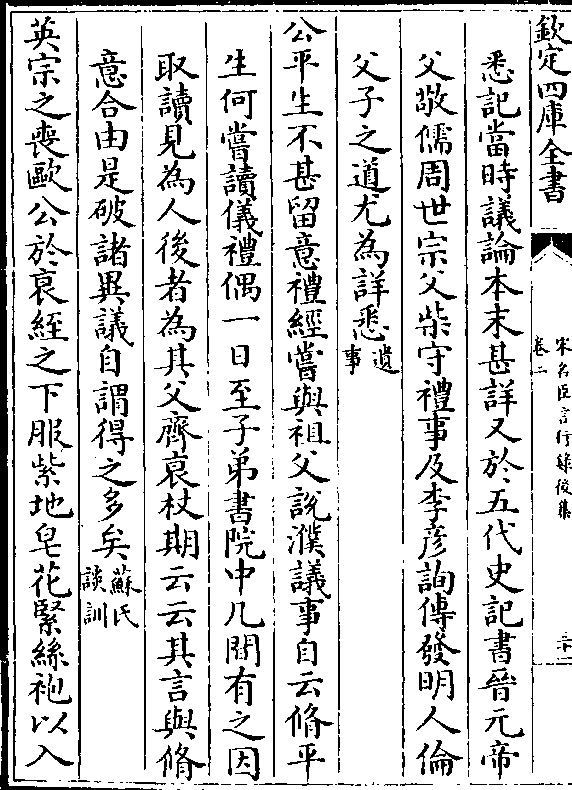 欽定四庫全書
宋名臣言行錄後集
卷二
三十一
悉記當時議論本末甚詳又於五代史記書晉元帝
父敬儒周世宗父柴守禮事及李彥詢傳發明人倫
父子之道尤為詳悉遺事
公平生不甚留意禮經嘗與祖父說濮議事自云脩平
生何嘗讀儀禮偶一日至子弟書院中几間有之因
取讀見為人後者為其父齊衰杖期云云其言與脩
意合由是破諸異議自謂得之多矣蘇氏談訓
英宗之喪歐公於衰絰之下服紫地皂花緊絲袍以入